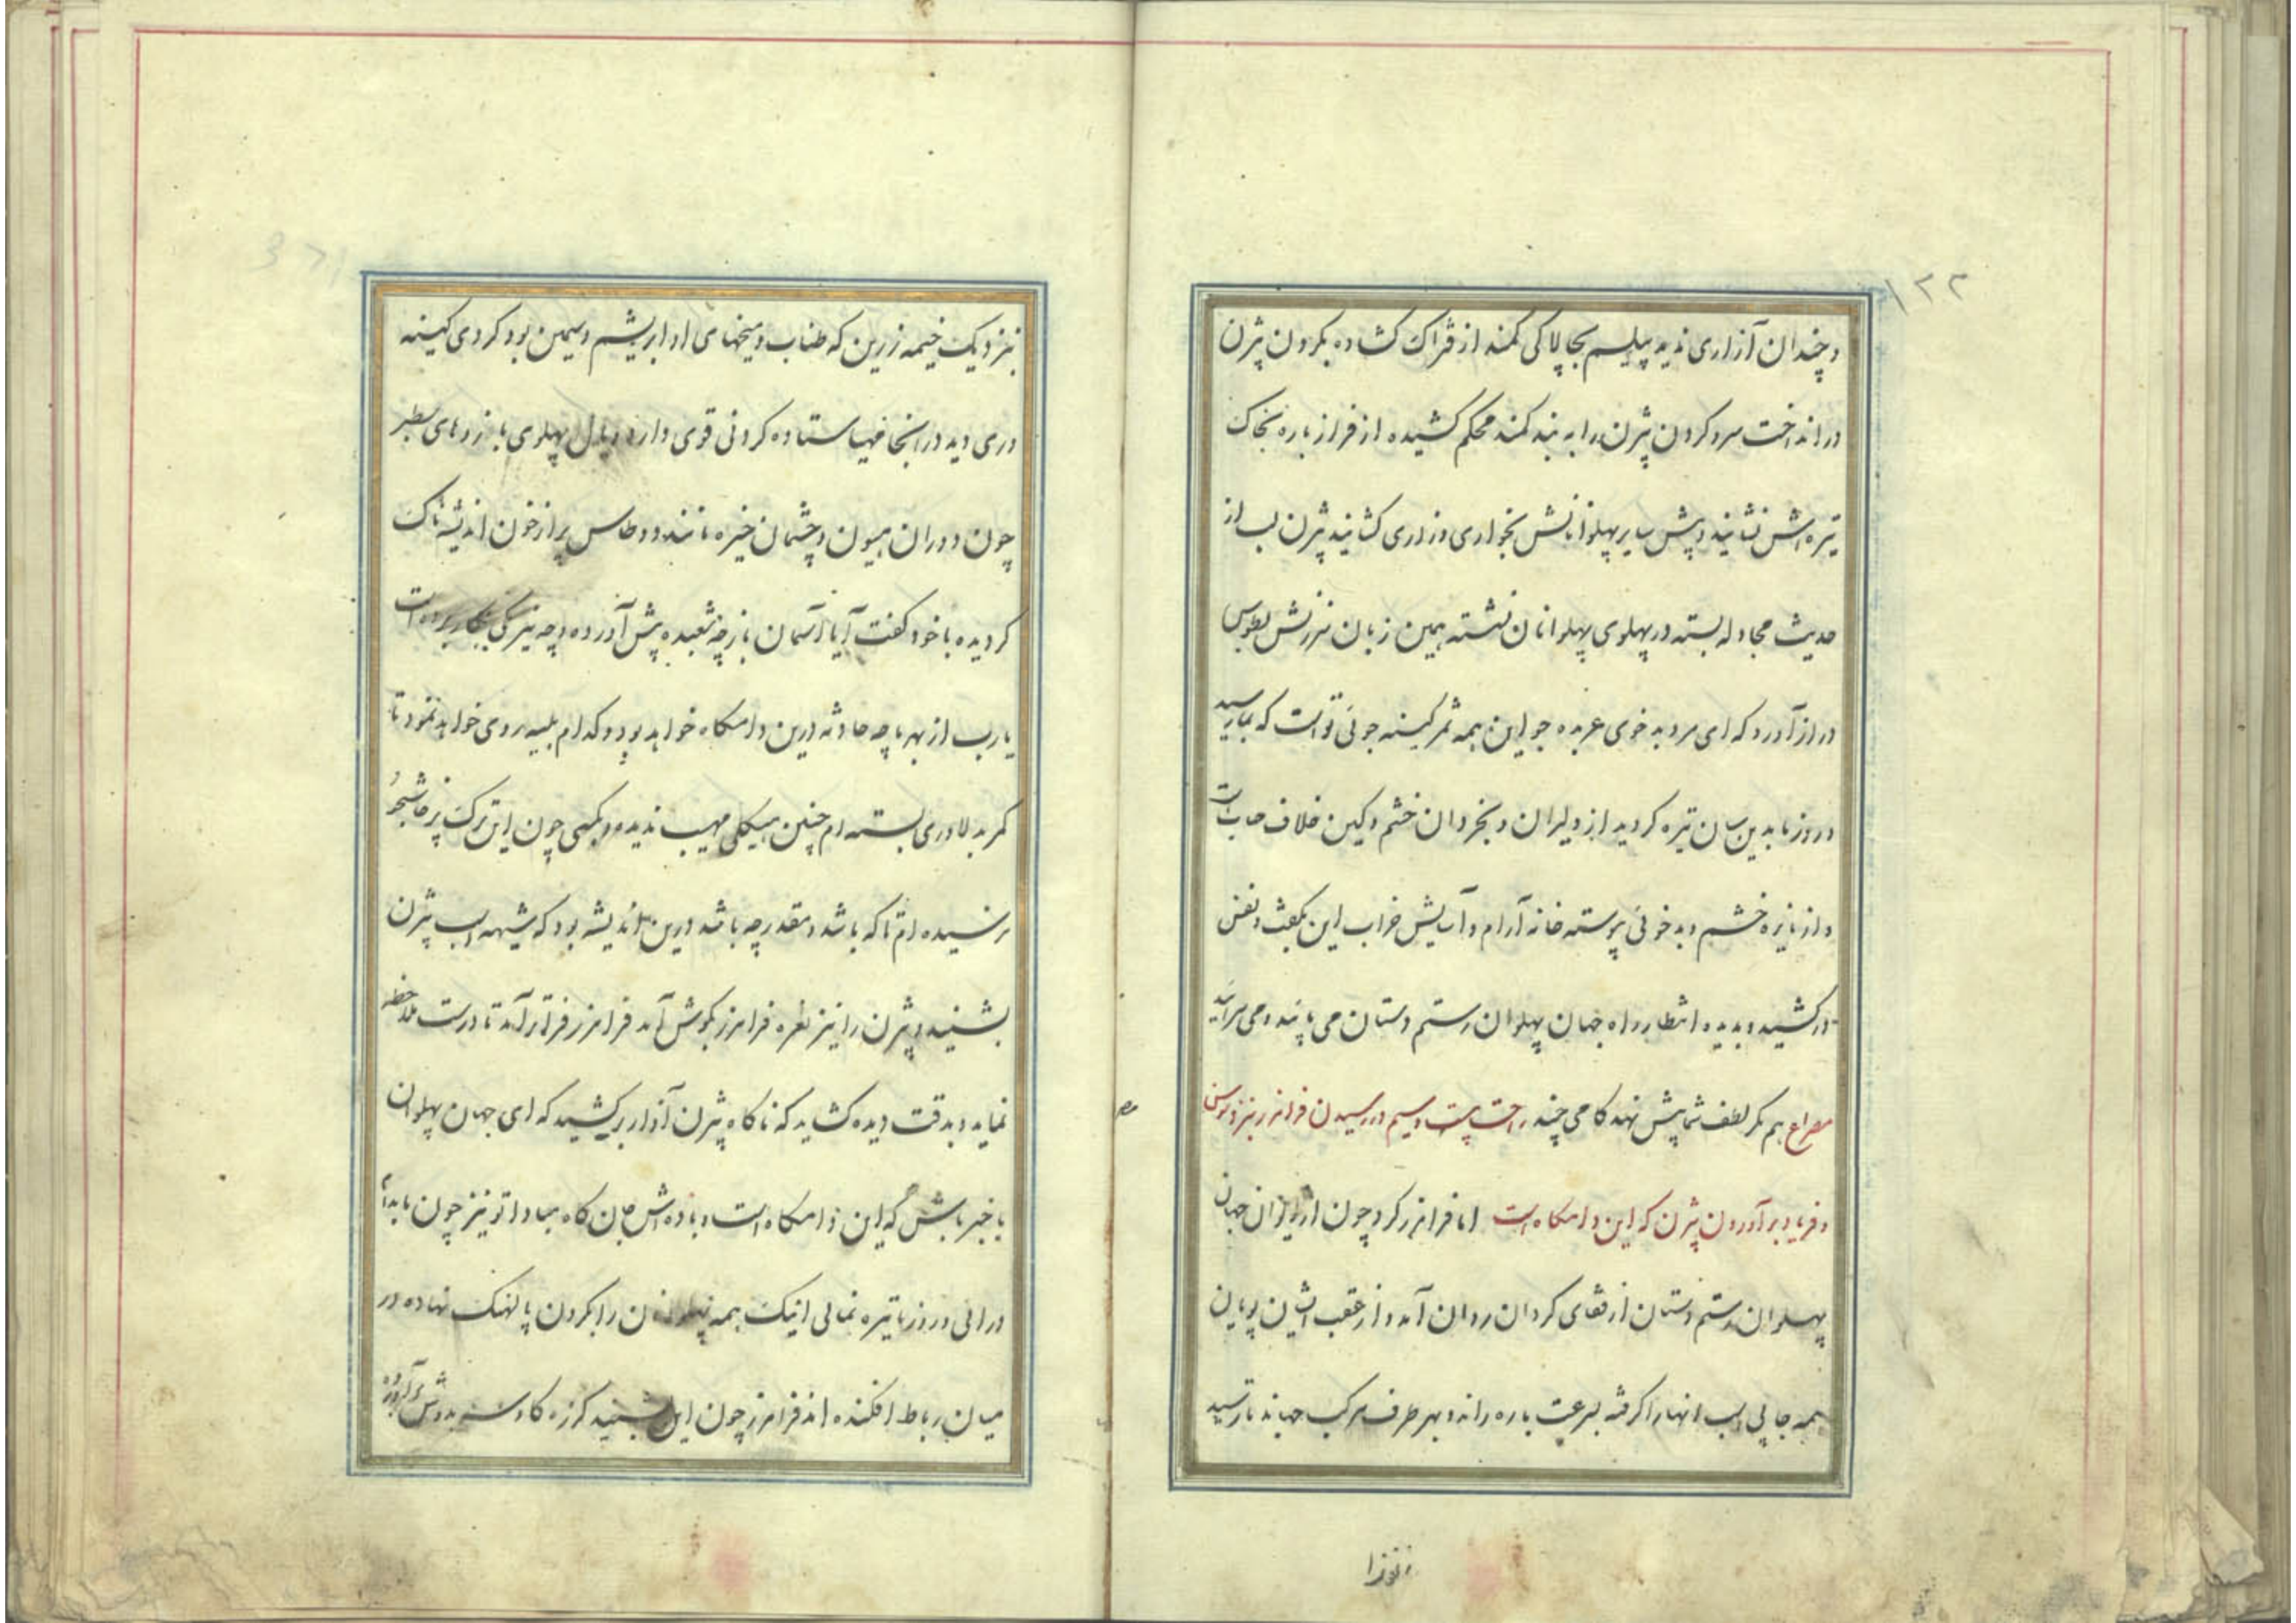 ۱۲۲
و چندان آزاری ندید پیلسم بچالاکی کمند از فتراک کشاده بکردن بیژن
در انداخت سر و کردن بیژن را به بند کمند محکم کشیده از فراز باره بخاک
تیره اش نشانید و پیش سایر پهلوانانش بخواری و زاری کشانید بیژن لب از
حدیث مجادله بسته در پهلوی پهلوانان نشسته همین زبان سرزنش بطوس
دراز آورد که ای مرد بد خوی عربده جو این همه ثمر کینه جوئی تو است که بما رسید
و روز ما بدین سان تیره کردید از دلیران و بخردان خشم و کین خلاف صاب است
و از نایره خشم و بد خوئی پیوسته خانه آرام و آسایش خراب این بکفت و نفس
در کشید و بدیده انتظار راه جهان پهلوان رستم دستان می پاید و می سراید
مصراع هم مکر لطف شما پیش نهد کامی چند راحت بیست و سیم در رسیدن فرامرز بنزد طوس
و فریاد بر آوردن بیژن که این دامکاه است اما فرامرز کرد چون از ایوان جهان
پهلوان رستم دستان از قفای کردان روان آمد و از عقب ایشان پویان
همه جا پی اسب آنها را کرفته بسرعت باره راند و بهر طرف مرکب جهاند تا رسید
بنزدیک خیمه زرین که طناب و میخهای او ابریشم و سیمین بود کردی کینه
وری دید در انجا مهیا ستاده کردنی قوی دارد و یال پهلوی با زرهای سطبر
چون دوران هیون و چشمان خیره مانند دو طاس پر از خون اندیشه ناک
کردیده با خود کفت آیا آسمان باز چه شعبده پیش آورده و چه نیرنکی بکار برده است
یا رب از بهر ما چه حادثه درین دامکاه خواهد بود و کدام بلیه روی خواهد نمود تا
کمر بدلاوری بسته ام چنین هیکلی مهیب ندیده و بکهی چون این ترک پرخاشجو
نرسیده ام تا که باشد و مقدر چه باشد درین اندیشه بود که شیهه اسب بیژن
بشنید و بیژن را نیز نعره فرامرز بکوش آمد فرامرز فراتر آمد تا درست ملاحظه
نماید و بدقت دیده کشاید که ناکاه بیژن آواز بر کشید که ای جهان پهلوان
با خبر باش که این دامکاه است و باده اش جان کاه مبادا تو نیز چون ما بدام
در ائی و روز ما تیره نمائی اینک همه پهلوانان را بکردن پالهنک نهاده در
میان رباط افکنده اند فرامرز چون این شنید کرزه کاوسر بدوش بر آورده